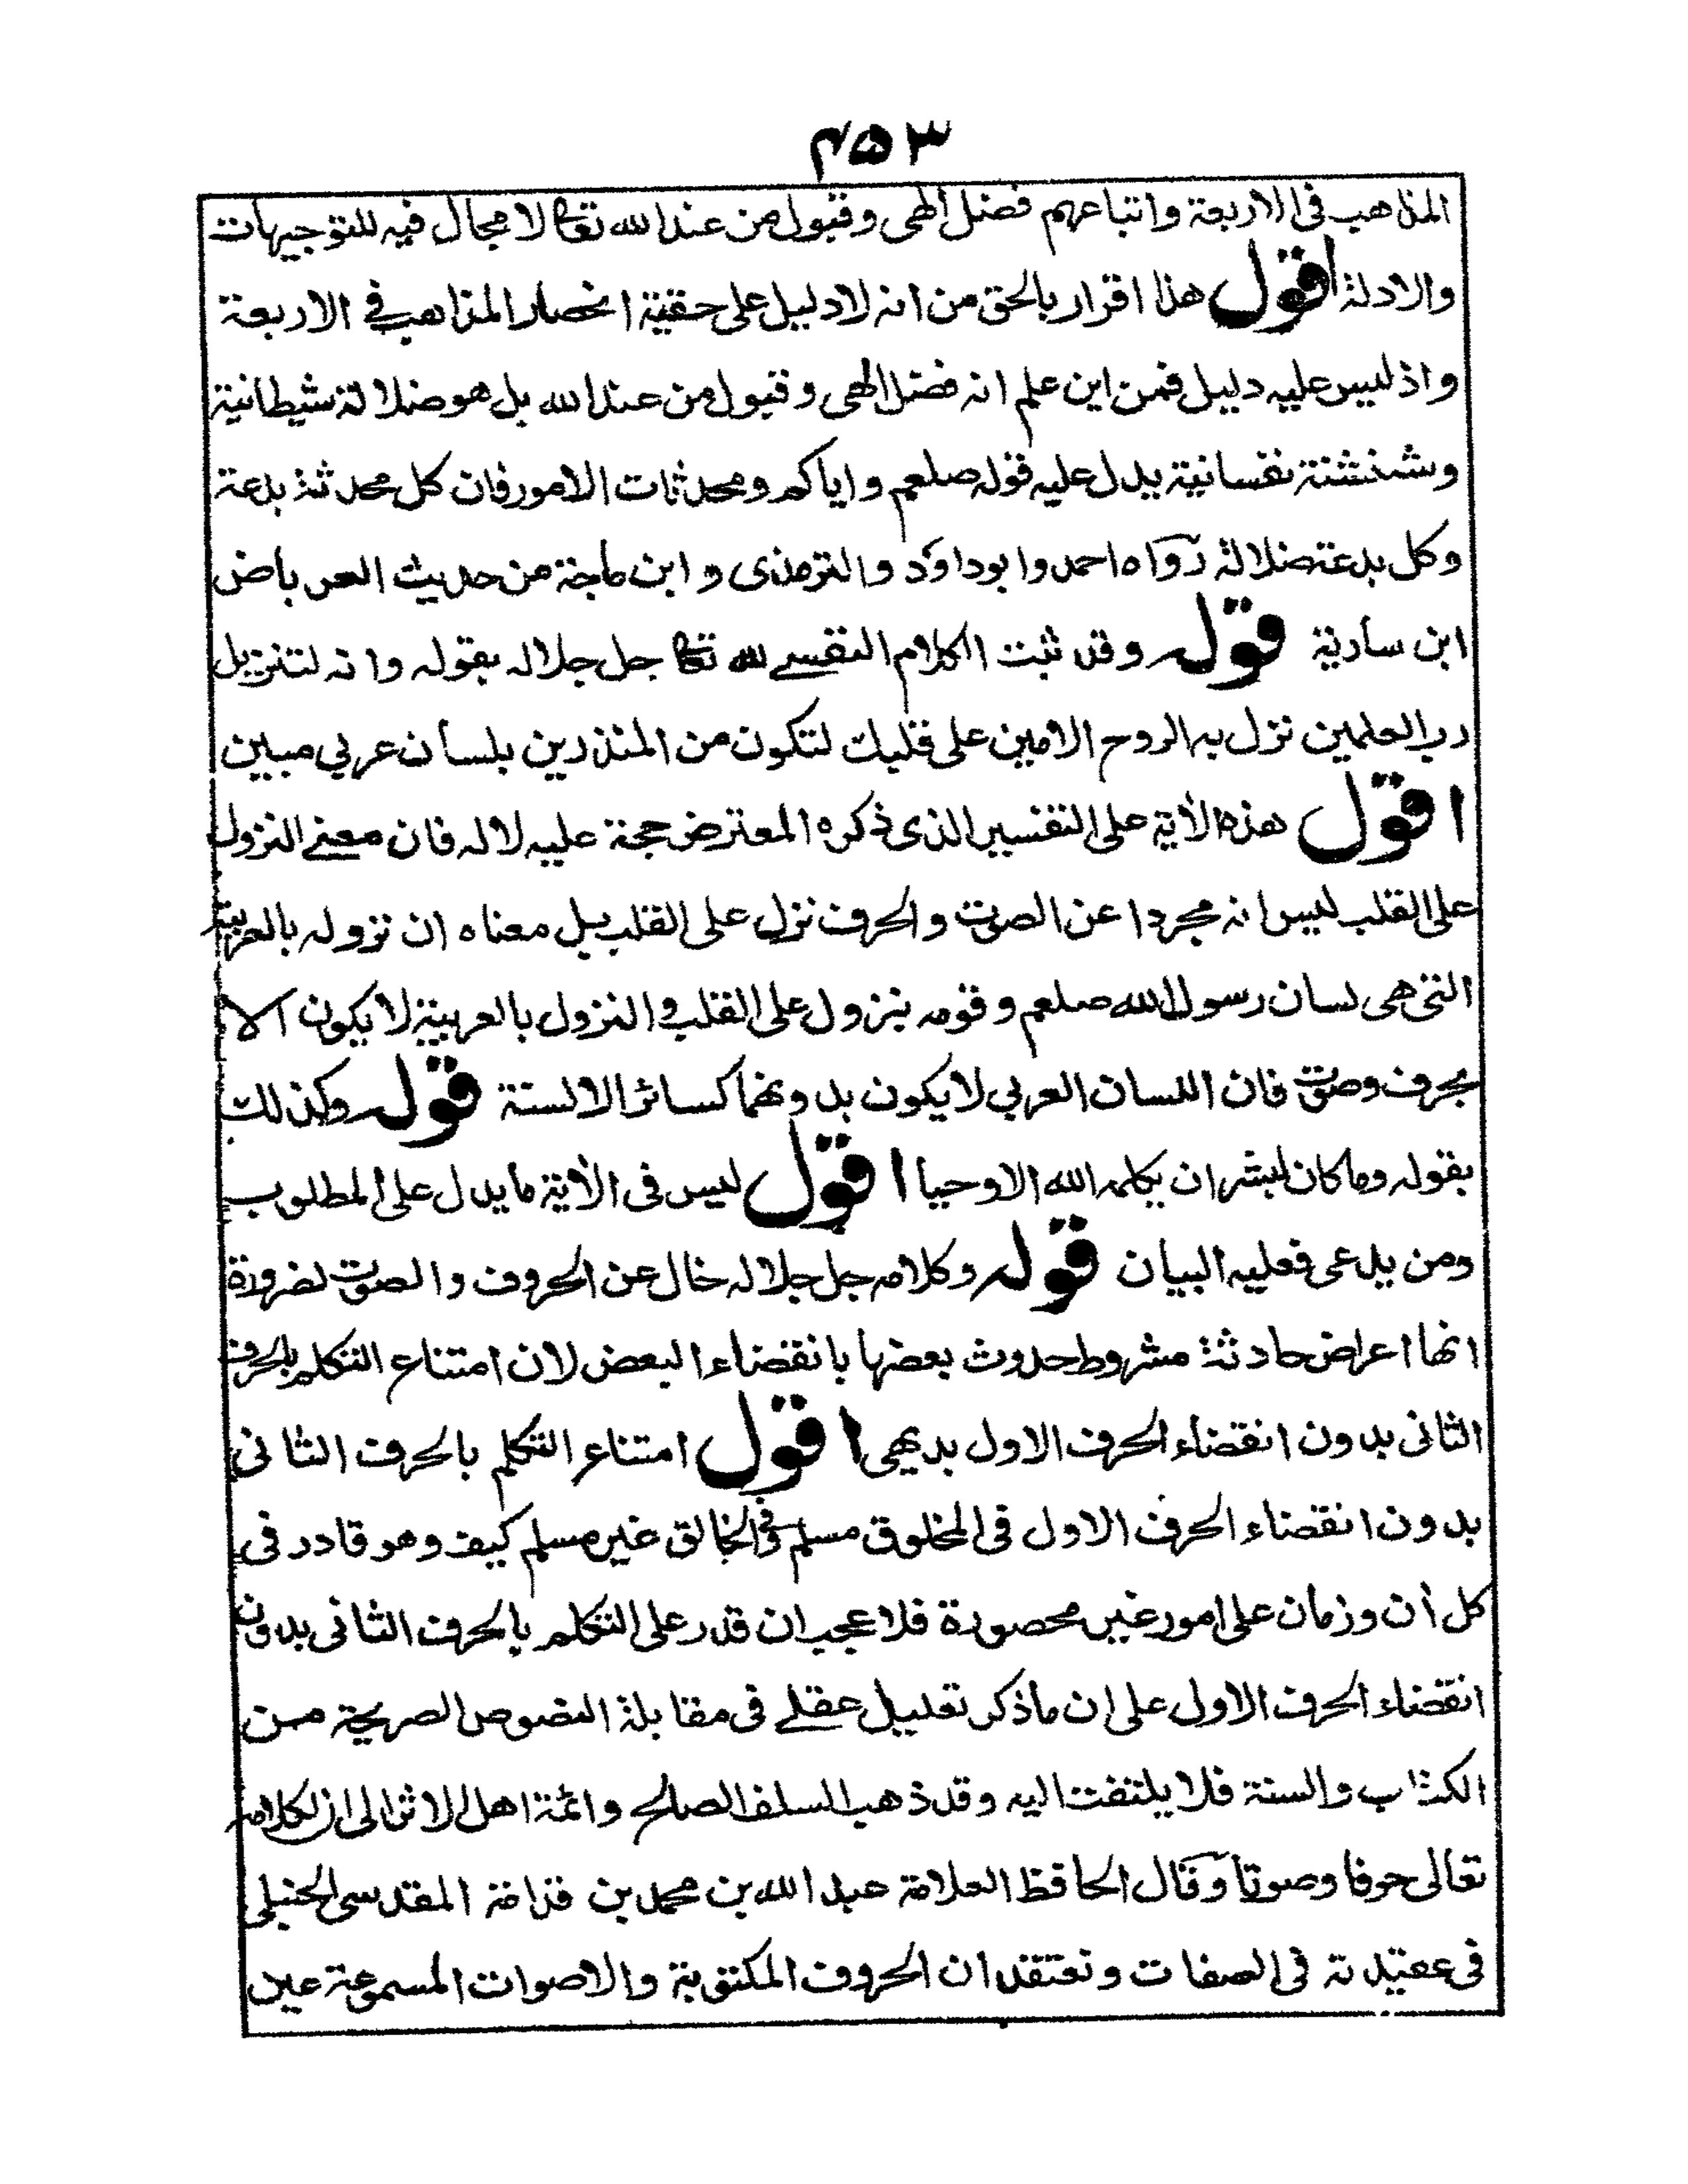 ۴۵۳
المذاهب فى الاربعة واتباعهم فضل الهى وقبول من عند الله تعالى لا مجال فيه للتوجيهات
والادلة اقول هذا اقرار بالحق من انه لا دليل على حقية انحصار المذاهب فے الاربعة
واذ ليس عليه دليل فمن اين علم انه فضل الهى وقبول من عند الله بل هو ضلالة شيطانية
وشنشنة نفسانية يدل عليه قوله صلعم واياكم ومحدثات الامور فان كل محدثة بدعة
وكل بدعة ضلالة رواه احمد وابوداؤد والترمذى وابن ماجة من حديث العرباض
ابن سارية قوله وقد ثبت الكلام النفسے لله تعالى جل جلاله بقوله وانه لتنزيل
رب العلمين نزل به الروح الامين على قلبك لتكون من المنذرين بلسان عربي مبين
اقول هذه الأية على التفسير الذى ذكره المعترض حجة عليه لا له فان معنے النزول
على القلب ليس انه مجردا عن الصوت والحرف نزل على القلب بل معناه ان نزوله بالعربية
التى هى لسان رسول الله صلعم وقومه ينزول على القلب والنزول بالعربية لا يكون الا
بحرف وصوت فان اللسان العربي لا يكون بدونهما كسائر الالسنة قوله وكذلك
بقوله وما كان لبشر ان يكلمه الله الا وحيا اقول ليس فى الأية ما يدل على المطلوب
ومن يدعى فعليه البيان قوله وكلامه جل جلاله خال عن الحروف والصوت لضرورة
انها اعراض حادثة مشروط حدوث بعضها بانقضاء البعض لان امتناع التكلم بالحرف
الثانى بدون انقضاء الحرف الاول بديهى اقول امتناع التكلم بالحرف الثانى
بدون انقضاء الحرف الاول فى المخلوق مسلم وفى الخالق غير مسلم كيف وهو قادر فى
كل أن وزمان على امور غير محصورة فلا عجب ان قدر على التكلم بالحرف الثانى بدون
انقضاء الحرف الاول على ان ما ذكر تعليل عقلے فى مقابلة النصوص الصريحة من
الكتاب والسنة فلا يلتفت اليه وقد ذهب السلف الصالح وائمة اهل الاثر الى ان لكلامه
تعالى حرفا وصوتا وقال الحافظ العلامة عبد الله بن محمد بن قدامة المقدسى الحنبلى
فى عقيدته فى الصفات ونعتقد ان الحروف المكتوبة والاصوات المسموعة عين